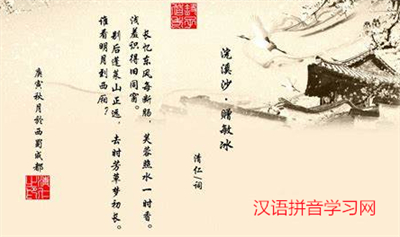 浣溪沙·赠敏冰
清仁/词
长忆东风每断肠，芙蓉照水一时香。
浅羞识得旧闺窗。
别后蓬莱山正远，去时芳草梦初长。
谁看明月到西厢？
庚寅秋月於西蜀成都
汉语拼音学习网